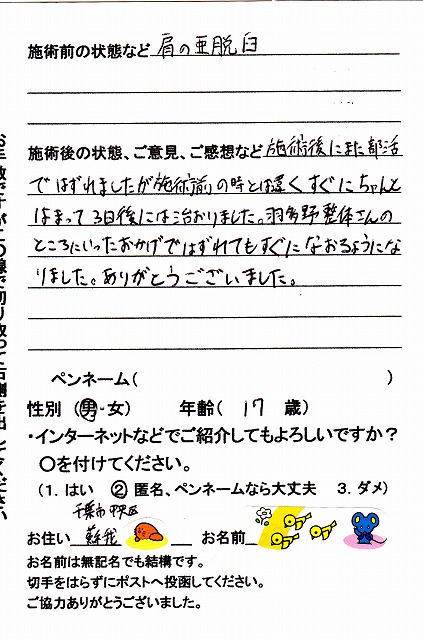 施術前の状態など 肩の亜脱臼
施術後の状態、ご意見、ご感想など 施術後にまた部活
ではずれましたが施術前の時とは違くすぐにちゃんと
はまって3日後には治おりました。羽多野整体さんの
ところにいったおかげではずれてもすぐになおるようにな
りました。ありがとうございました。
ペンネーム( )
性別 (男・女) 年齢( 17 歳)
・インターネットなどでご紹介してもよろしいですか?
○を付けてください。
(1. はい ② 匿名、ペンネームなら大丈夫 3. ダメ)
千葉市中央区
お住い 蘇我 お名前
お名前は無記名でも結構です。
切手をはらずにポストへ投函してください。
ご協力ありがとうございました。
お手数ですがこの線で切り取って右側を出してください